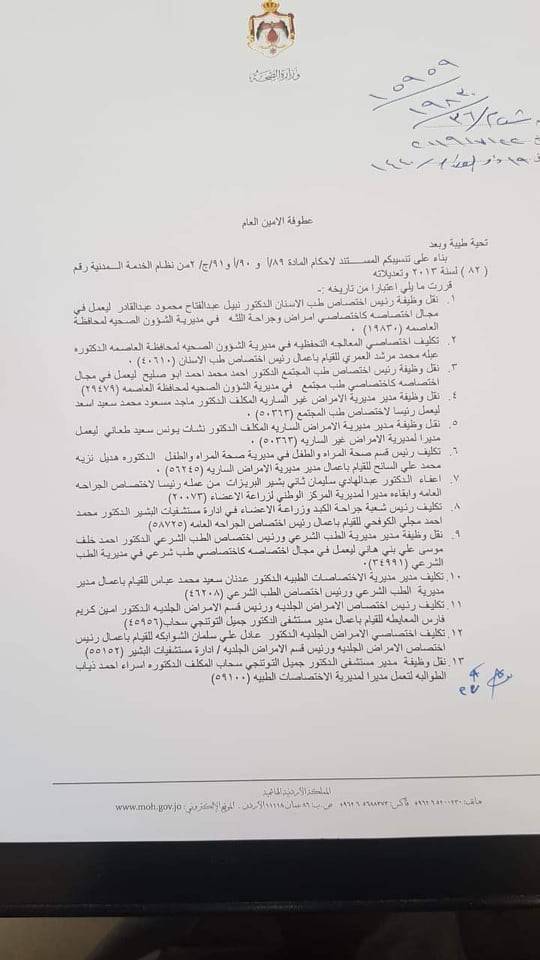 وزارة الصحة
١٥٩٥٩
١٩٨٣٠
عطوفة الامين العام
تحية طيبة وبعد
بناء على تنسيبكم المستند لاحكام المادة ٨٩/أ و ٩٠/أ و٩١/ج/ ٢من نظام الخدمة المدنية رقم
( ٨٢ ) لسنة ٢٠١٣ وتعديلاته
قررت ما يلي اعتبارا من تاريخه :-
١. نقل وظيفة رئيس اختصاص طب الاسنان الدكتور نبيل عبدالفتاح محمود عبدالقادر ليعمل في
مجال اختصاصه كاختصاصي امراض وجراحة اللثه في مديرية الشؤون الصحيه لمحافظة
العاصمه (١٩٨٣٠)
٢. تكليف اختصاصي المعالجه التحفظيه في مديرية الشؤون الصحيه لمحافظة العاصمه الدكتوره
عبله محمد مرشد العمري للقيام باعمال رئيس اختصاص طب الاسنان (٤٠٦١٠) ٠
٣. نقل وظيفة رئيس اختصاص طب المجتمع الدكتور احمد محمد احمد ابو صليح ليعمل في مجال
اختصاصه كاختصاصي طب مجتمع في مديرية الشؤون الصحيه لمحافظة العاصمه (٢٩٤٧٩)
٤. نقل وظيفة مدير مديرية الامراض غير الساريه المكلف الدكتور ماجد مسعود محمد سعيد اسعد
ليعمل رئيسا لاختصاص طب المجتمع (٥٠٣٦٣) ٠
٥. نقل وظيفة مدير مديرية الامراض الساريه المكلف الدكتور نشات يونس سعيد طعاني ليعمل
مديرا لمديرية الامراض غير الساريه (٥٠٣٦٣) ٠
٦. تكليف رئيس قسم صحة المراه والطفل في مديرية صحة المراه والطفل الدكتوره هديل نزيه
محمد علي السائح للقيام باعمال مدير مديرية الامراض الساريه (٥٦٢٤٥) ٠
٧. اعفاء الدكتور عبدالهادي سليمان ثاني بشير البريزات من عمله رئيسا لاختصاص الجراحه
العامه وابقاءه مديرا لمديرية المركز الوطني لزراعة الاعضاء (٢٠٠٧٣)
٨. تكليف رئيس شعبة جراحة الكبد وزراعة الاعضاء في ادارة مستشفيات البشير الدكتور محمد
احمد مجلي الكوفحي للقيام باعمال رئيس اختصاص الجراحه العامه (٥٨٧٢٥)
٩. نقل وظيفة مدير مديرية الطب الشرعي ورئيس اختصاص الطب الشرعي الدكتور احمد خلف
موسى علي بني هاني ليعمل في مجال اختصاصه كاختصاصي طب شرعي في مديرية الطب
الشرعي (٣٤٩٩١)٠
١٠. تكليف مدير مديرية الاختصاصات الطبيه الدكتور عدنان سعيد محمد عباس للقيام باعمال مدير
مديرية الطب الشرعي ورئيس اختصاص الطب الشرعي (٤٦٢٠٨)
١١. تكليف رئيس اختصاص الامراض الجلديه ورئيس قسم الامراض الجلديه الدكتور امين كريم
فارس المعايطه للقيام باعمال مدير مستشفى الدكتور جميل التوتنجي سحاب(٤٥٩٥٦)
١٢. تكليف اختصاصي الامراض الجلديه الدكتور عادل علي سلمان الشوابكه للقيام باعمال رئيس
اختصاص الامراض الجلديه ورئيس قسم الامراض الجلديه / ادارة مستشفيات البشير (٥٥١٥٢)
١٣. نقل وظيفة مدير مستشفى الدكتور جميل التوتنجي سحاب المكلف الدكتوره اسراء احمد ذياب
الطوالبه لتعمل مديرا لمديرية الاختصاصات الطبيه (٥٩١٠٠)
المملكة الأردنية الهاشمية
هاتف: ٥٢٠٠٢٣٠ ٩٦٢٦ فاكس: ٥٦٨٨٣٧٣ ٩٦٢٦ ص.ب: ٨٦ عمان ١١١١٨ الأردن. الموقع الإلكتروني: www.moh.gov.jo